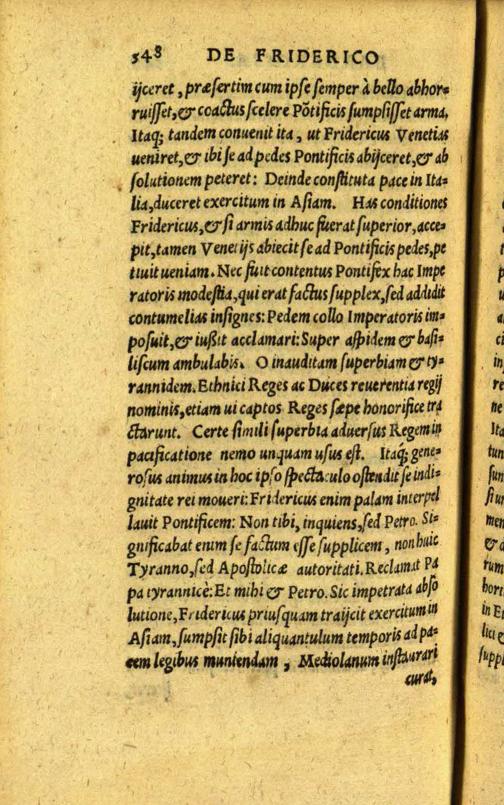 348 DE FRIDERICO
ijceret, præſertim cum ipſe ſemper à bello abhor=
ruiſſet, & coactus ſcelere Põtificis ſumpſiſſet arma.
Itaq; tandem conuenit ita, ut Fridericus Venetias
ueniret, & ibi ſe ad pedes Pontificis abijceret, & ab
ſolutionem peteret: Deinde conſtituta pace in Ita=
lia, duceret exercitum in Aſiam. Has conditiones
Fridericus, & ſi armis adhuc fuerat ſuperior, acce=
pit, tamen Venetijs abiecit ſe ad Pontificis pedes, pe
tiuit ueniam. Nec fuit contentus Pontifex hac Impe
ratoris modeſtia, qui erat factus ſupplex, ſed addidit
contumelias inſignes: Pedem collo Imperatoris im=
poſuit, & iußit acclamari: Super aſpidem & baſi=
liſcum ambulabis. O inauditam ſuperbiam & ty=
rannidem. Ethnici Reges ac Duces reuerentia regij
nominis, etiam ui captos Reges ſæpe honorifice tra
ctarunt. Certe ſimili ſuperbia aduerſus Regem in
pacificatione nemo unquam uſus eſt. Itaq; gene=
roſus animus in hoc ipſo ſpectaculo oſtendit ſe indi=
gnitate rei moueri: Fridericus enim palam interpel
lauit Pontificem: Non tibi, inquiens, ſed Petro. Si=
gnificabat enim ſe factum eſſe ſupplicem, non huic
Tyranno, ſed Apoſtolicæ autoritati. Reclamat Pa
pa tyrannicè: Et mihi & Petro. Sic impetrata abſo
lutione, Fridericus priuſquam traijcit exercitum in
Aſiam, ſumpſit ſibi aliquantulum temporis ad pa=
cem legibus muniendam, Mediolanum inſtaurari
curat,